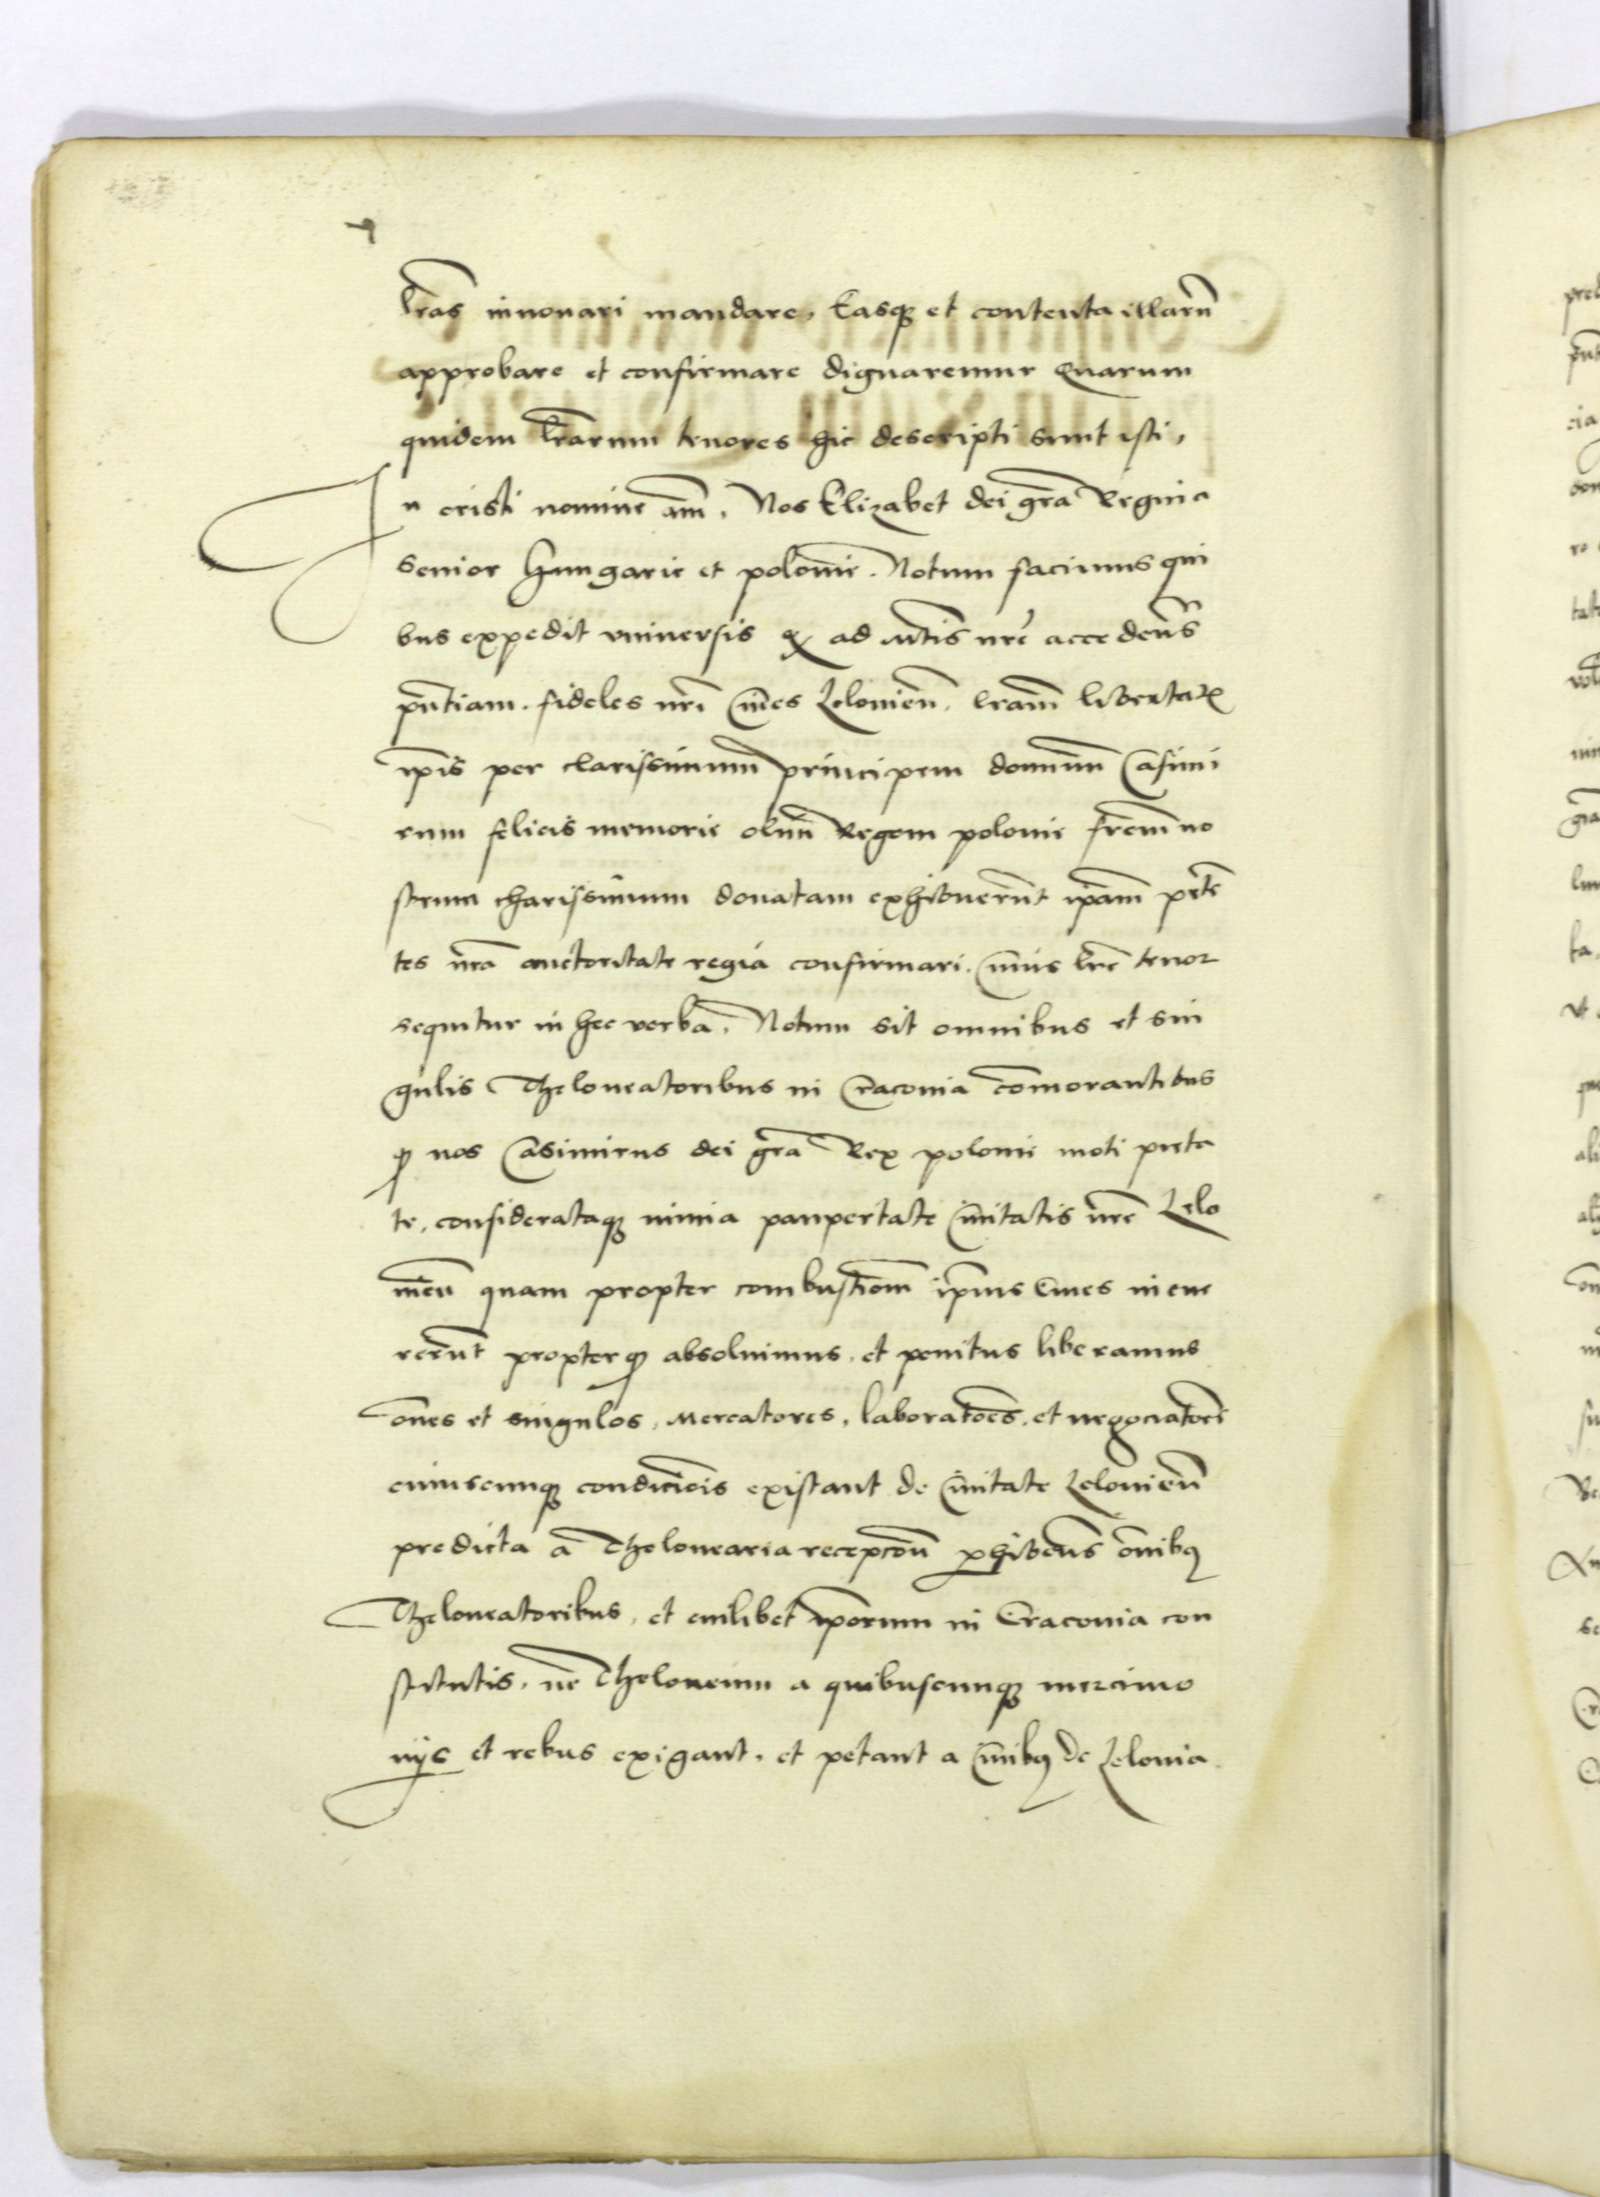 lras innouari mandare, Easq et contenta illarū
approbare et confirmare dignaremur Quarum
quidem lrarum tenores hic descripti sunt isti,
In cristi nomine am̄. Nos Elizabet dei gra Regina
senior Hungarie et polonie. Notum facimus qui
bus expedit vniuersis ad nre accedens
pntiam. fideles nri Ciues Leloviens. lram libertatis
ipis per clarissimum principem dominum Casimi
rum felicis memorie olim Regem polonie frem no
strum charissimum donatam exhibuerunt ipam peten
tes nra auctoritate regia confirmari. Cuius lre tenor
sequitur in hec verba. Notum sit omnibus et sin
gulis Theloneatoribus in Cracouia comorantibus
q nos Casimirus dei gra Rex polonie moti pieta
te, considerataq nimia paupertate Ciuitatis nre Lelo
uien quam propter combustionem ipius Ciues incur
rerunt propter q absoluimus, et penitus liberamus
oēs et singulos, Mercatores, laboratoēs, et negociatores
cuiuscunq condicionis existant de Ciuitate Lelouien
predicta a Thelonearia recepcion phibens omnibq
Theloneatoribus, et cuilibet iporum in Cracouia con
stitutis, ne Theloneum a quibuscunq mercimo
nijs et rebus exigant, et petant a Ciuibq de Lelouia.